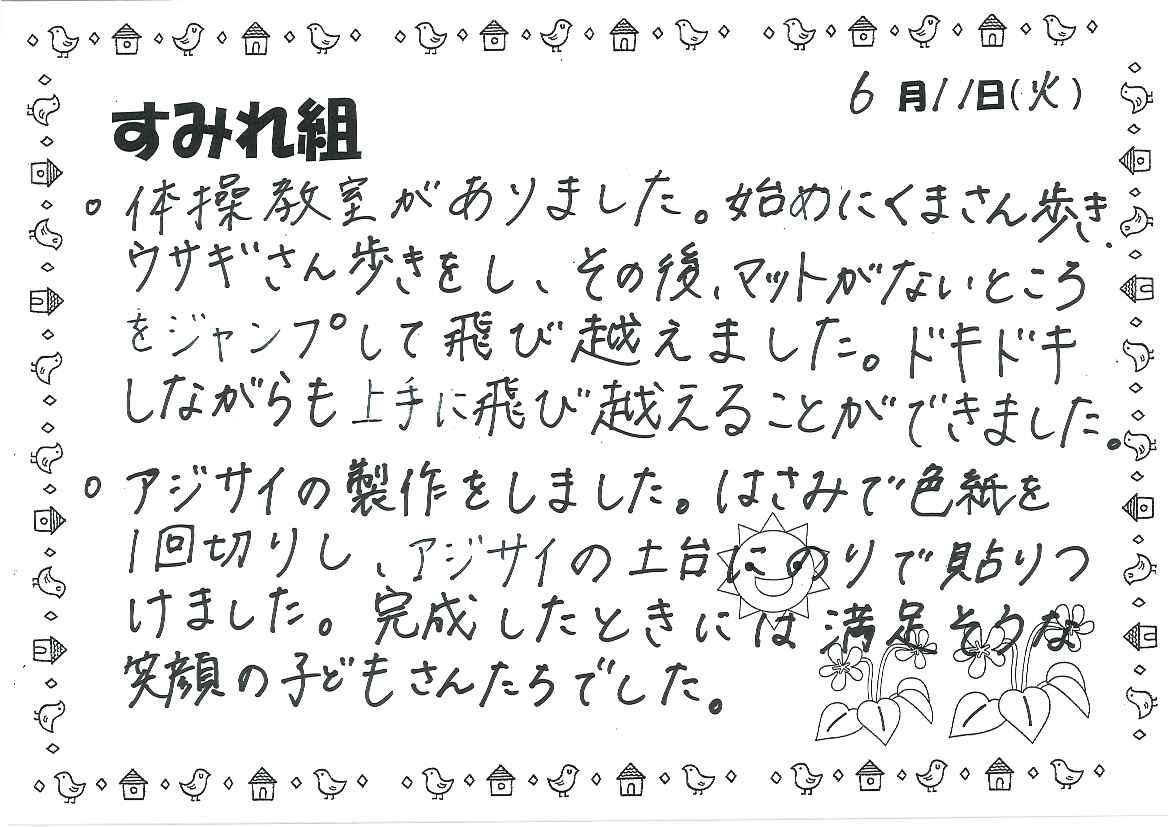 6月11日(火)
すみれ組
○体操教室がありました。始めにくまさん歩き、
ウサギさん歩きをし、その後、マットがないところ
をジャンプして飛び越えました。ドキドキ
しながらも上手に飛び越えることができました。
○アジサイの製作をしました。はさみで色紙を
1回切りし、アジサイの土台にのりで貼りつ
けました。完成したときには満足そうな
笑顔の子どもさんたちでした。